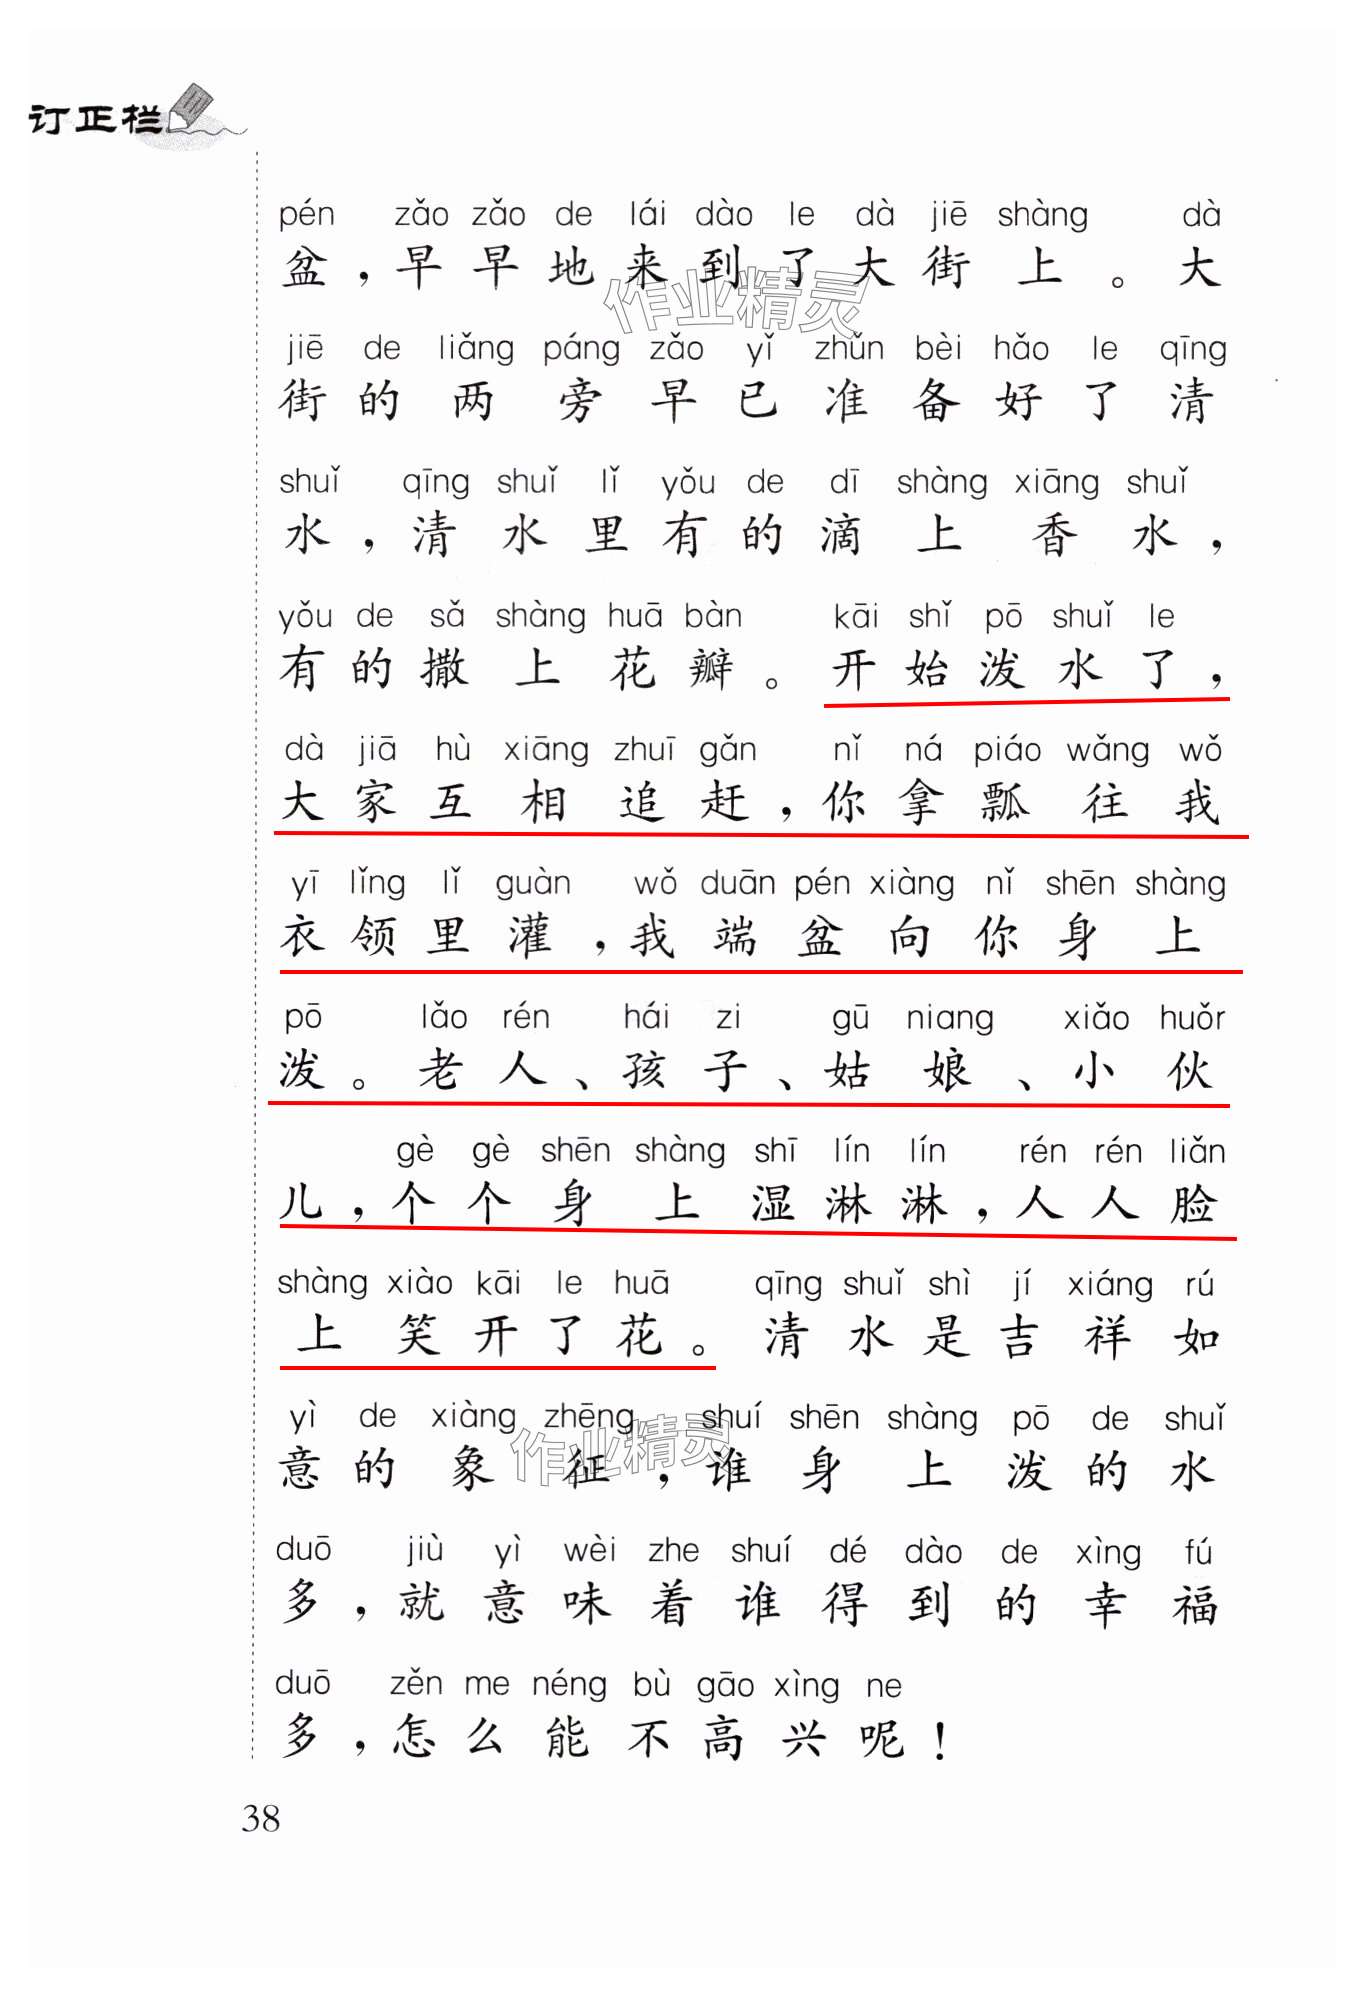 订正栏
pén zǎo zǎo de lái dào le dà jiē shàng dà
盆，早早地来到了大街上。大
作业精灵
jiē de liǎng páng zǎo yǐ zhǔn bèi hǎo le qīng
街的两旁早已准备好了清
shuǐ qīng shuǐ lǐ yǒu de dī shàng xiāng shuǐ
水，清水里有的滴上香水，
yǒu de sǎ shàng huā bàn kāi shǐ pō shuǐ le
有的撒上花瓣。开始泼水了，
dà jiā hù xiāng zhuī gǎn nǐ ná piáo wǎng wǒ
大家互相追赶，你拿瓢往我
yī lǐng lǐ guàn wǒ duān pén xiàng nǐ shēn shàng
衣领里灌，我端盆向你身上
pō lǎo rén hái zi gū niang xiǎo huǒr
泼。老人、孩子、姑娘、小伙
gè gè shēn shàng shī lín lín rén rén liǎn
儿，个个身上湿淋淋，人人脸
shàng xiào kāi le huā qīng shuǐ shì jí xiáng rú
上笑开了花。清水是吉祥如
yì de xiàng zhēng shuí shēn shàng pō de shuǐ
意的象征，谁身上泼的水
作业精灵
duō jiù yì wèi zhe shuí dé dào de xìng fú
多，就意味着谁得到的幸福
duō zěn me néng bù gāo xìng ne
多，怎么能不高兴呢！
38